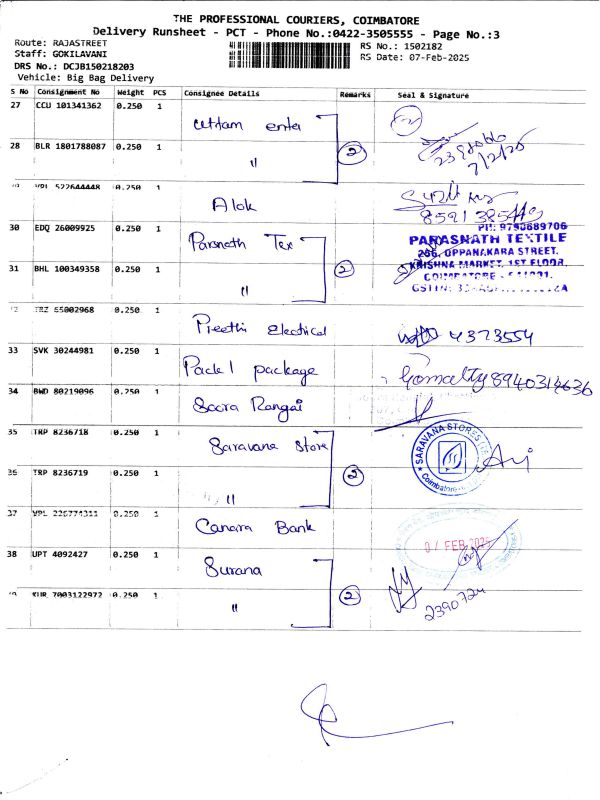 THE PROFESSIONAL COURIERS, COIMBATORE
Delivery Runsheet - PCT - Phone No.:0422-3505555 - Page No.:3
Route: RAJASTREET
Staff: GOKILAVANI
DRS No.: DCJB150218203
Vehicle: Big Bag Delivery
RS No.: 1502182
RS Date: 07-Feb-2025
S No Consignment No Weight PCS Consignee Details Remarks Seal & Signature
27 CCU 101341362 0.250 1 Uttam enter
28 BLR 1801788087 0.250 1 " 2
7/2/25
522644448 0.250 1 Alok
30 EDQ 26009925 0.250 1 Parsnath Tex
PH: 9790689706
PARASNATH TEXTILE
266, OPPANAKARA STREET,
KRISHNA MARKET, 1ST FLOOR,
COIMBATORE - 641001.
31 BHL 100349358 0.250 1 " 2
65002968 0.250 1 Preethi Electrical 4373554
33 SVK 30244981 0.250 1 Pack 1 package Gomathy 8940314636
34 BWD 80219096 0.250 1 Rangai
35 TRP 8236718 0.250 1 Saravana Store
SARAVANA STORES
Coimbatore
36 TRP 8236719 0.250 1 " 2
37 0.250 1 Canara Bank
07 FEB 2025
38 UPT 4092427 0.250 1 Surana
7003122972 0.250 1 " 2
2390724